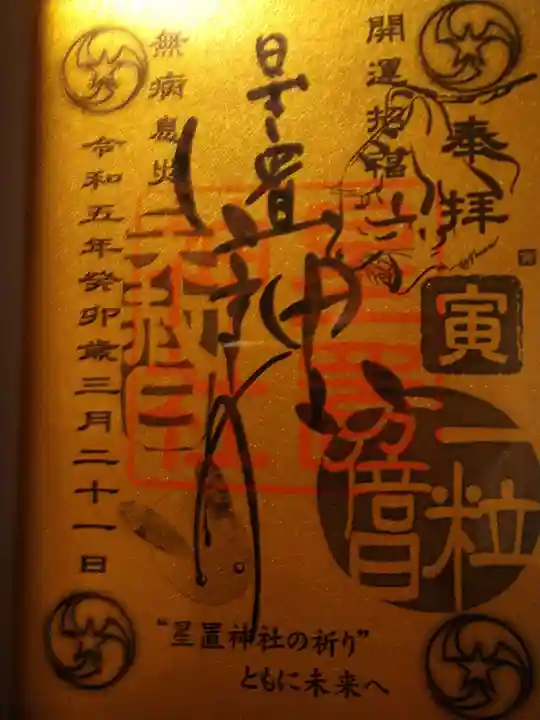 奉拝
開運招福
星置神社
無病息災
令和五年癸卯歳三月二十一日
寅
一粒万倍日
“星置神社の祈り”
ともに未来へ